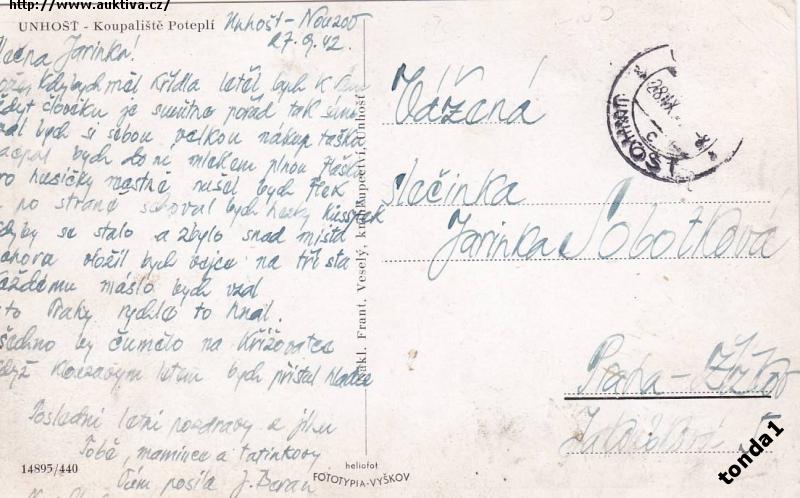 http://www.auktiva.cz/
UNHOŠŤ - Koupaliště Poteplí
Unhošť - Nouzov
27.9.42.
Slečna Jarinka!
kdybych měl křídla letěl bych k
člověku je smutno pořád tak
bych si sebou velkou nákup tašku
bych do ní mlékem plnou flašku
pro husičky mastné bych flek
po straně schoval bych hezky
kdyby se stalo a zbylo snad místa
vložil bych vejce na tři sta
každému máslo bych vzal
do Prahy rychle to hnal.
všechno by čumělo na Křižovatce
když klouzavým letem bych přistál hladce
Poslední letní pozdravy
Tobě, mamince a tatínkovy
Vám posílá J. Beran
14895/440
nakl. Frant. Veselý, knihkupectví, Unhošť
heliofot
FOTOTYPIA-VYŠKOV
UNHOŠŤ
28. IX.
Vážená
slečinka
Jarinka Sobotková
Praha - Žižkov
tonda1